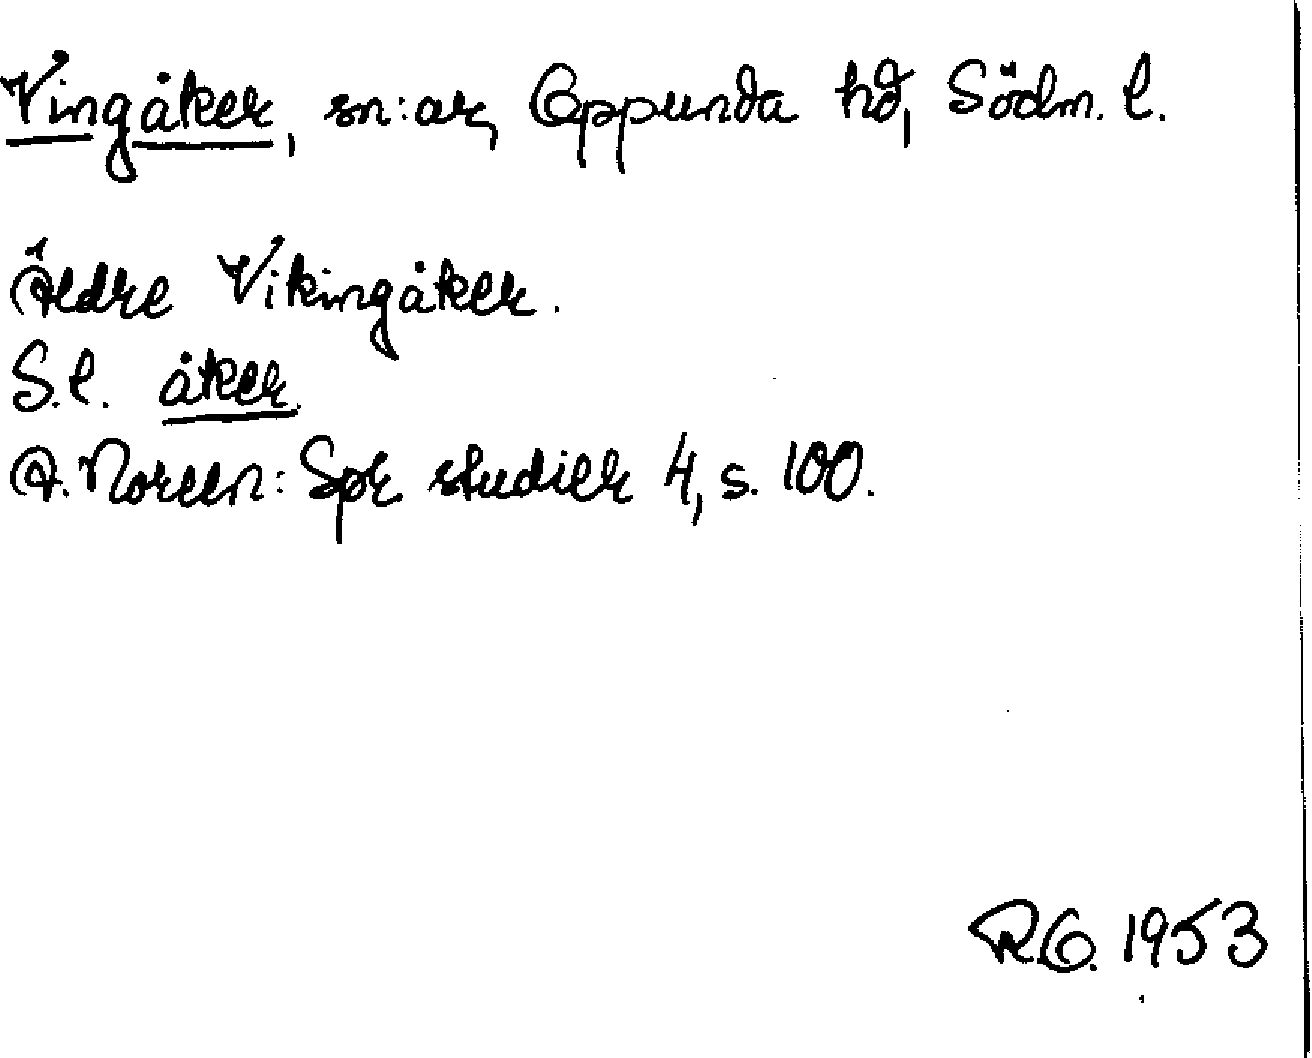 Vingåker, sn:ar, Oppunda hd, Södm. l.
Äldre Vikingåker.
S.l. åker.
A. Noreen: Spr. studier 4, s. 100.
R.O. 1953